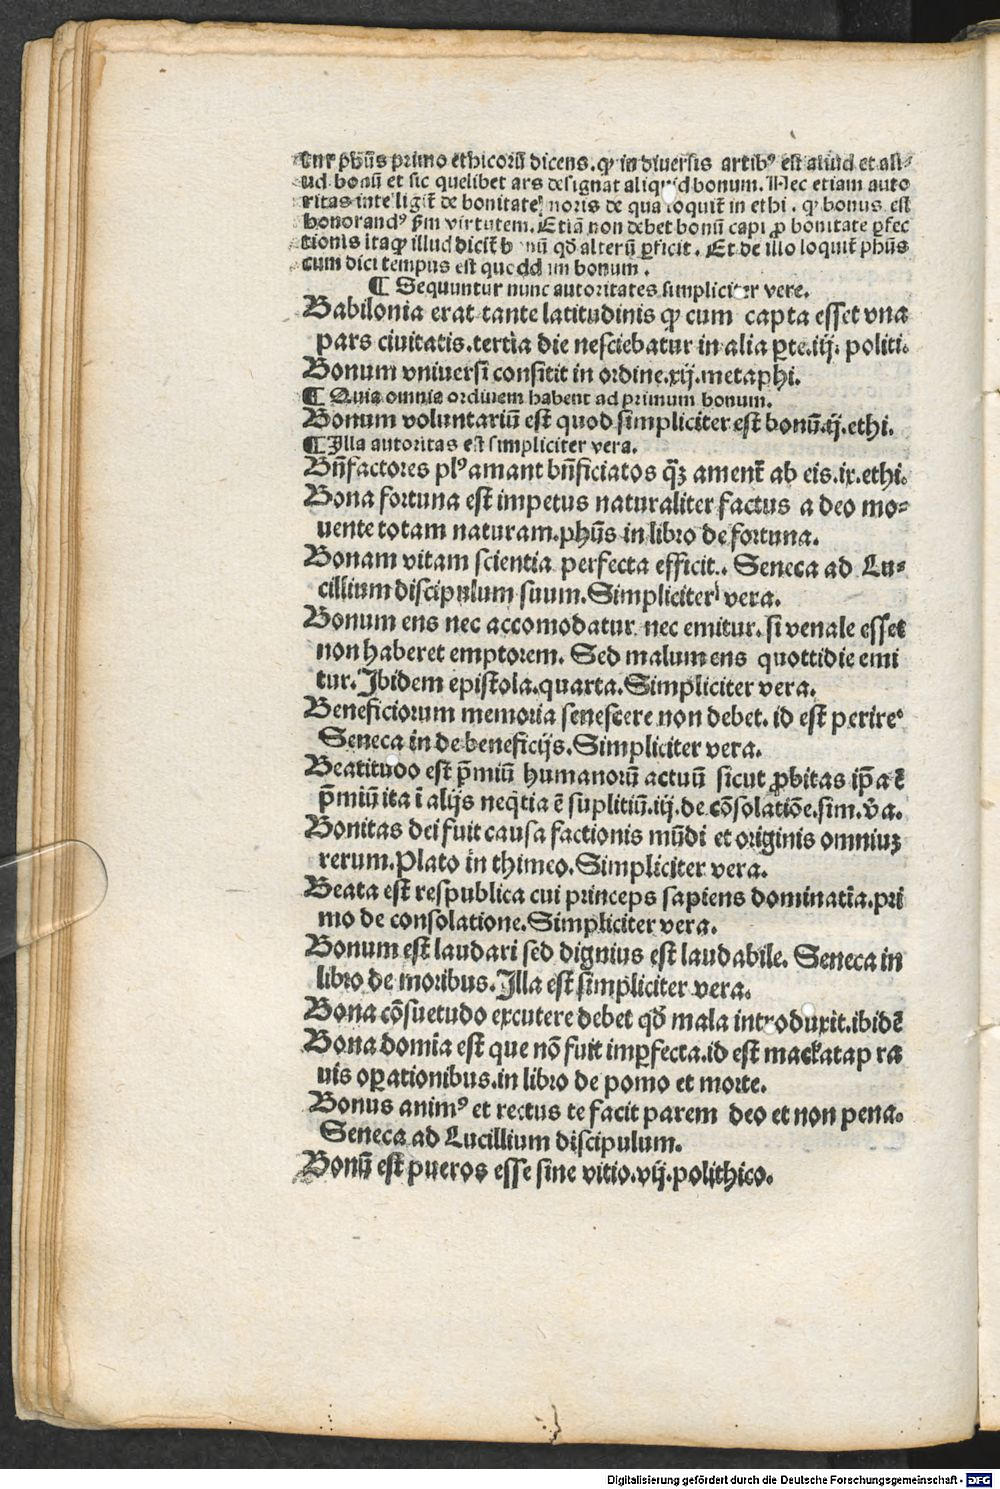 tur ph̄us primo ethicorū dicens. ꝙ in diuersis artibꝰ est aliud et ali⸗
ud bonū et sic quelibet ars designat aliquid bonum. Hec etiam auto
ritas intelligit̄ de bonitate noris de qua loquit̄ in ethi. ꝙ bonus est
honorandꝰ p̄m virtutem. Etiā non debet bonū capi ꝓ bonitate ꝑfec
tionis itaꝙ illud dicit̄ bonū qđ alterū ꝑficit. Et de illo loquit̄ ph̄us
cum dici tempus est quoddam bonum.
¶ Sequuntur nunc autoritates simpliciter vere.
Babilonia erat tante latitudinis ꝙ cum capta esset vna
pars ciuitatis.tertia die nesciebatur in alia ꝑte.iij. politi.
Bonum vniuersi consitit in ordine.xij.metaphi.
¶ Quia omnia ordinem habent ad primum bonum.
Bonum voluntariū est quod simpliciter est bonū.ij.ethi.
¶ Illa autoritas est simpliciter vera.
Bn̄factores plꝰ amant bn̄ficiatos q̄ꝫ ament̄ ab eis.ix.ethi.
Bona fortuna est impetus naturaliter factus a deo mo⸗
uente totam naturam.ph̄us in libro de fortuna.
Bonam vitam scientia perfecta efficit.. Seneca ad Lu⸗
cillium discipulum suum.Simpliciter vera.
Bonum ens nec accomodatur nec emitur.si venale esset
non haberet emptorem. Sed malum ens quottidie emi
tur.Ibidem epistola.quarta.Simpliciter vera.
Beneficiorum memoria senescere non debet. id est perire.
Seneca in de beneficijs.Simpliciter vera.
Beatitudo est p̄miū humanorū actuū sicut ꝓbitas ip̄a ē
p̄miū ita ī alijs neq̄tia ē suplitiū.iij.de cōsolatiōe.sim.v̄a.
Bonitas dei fuit causa factionis mūdi et originis omniuꝫ
rerum.Plato in thimeo.Simpliciter vera.
Beata est respublica cui princeps sapiens dominat̄a.pri
mo de consolatione.Simpliciter vera.
Bonum est laudari sed dignius est laudabile. Seneca in
libro de moribus.Illa est simpliciter vera.
Bona cōsuetudo excutere debet qđ mala introduxit.ibidē
Bona domīa est que nō fuit imꝑfecta.id est mackatap ra
uis oꝑationibus.in libro de pomo et morte.
Bonus animꝰ et rectus te facit parem deo et non pena.
Seneca ad Lucillium discipulum.
Bonū est pueros esse sine vitio.vij.polithico.
Digitalisierung gefördert durch die Deutsche Forschungsgemeinschaft - DFG